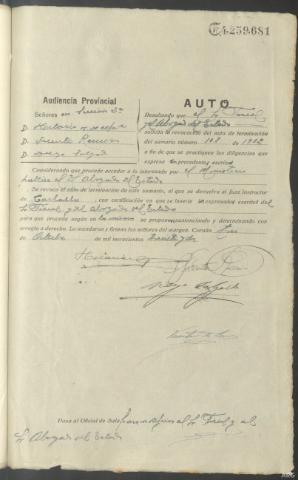 C 4.259.681
Audiencia Provincial
Señores en Sección 2ª
D.
D. Vicente Ramon
D.
AUTO
Resultando que el Sr. Fiscal
y Abogado del Estado
solicita la revocación del auto de terminación
del sumario número 108 de 1932
a fin de que se practiquen las diligencias que
expresa en precedentes escritos
Considerando que procede acceder a lo interesado por el Ministerio
Fiscal y el Abogado del Estado
Se revoca el auto de terminación de este sumario, el que se devuelva al Juez instructor
de Carballo, con certificación en que se inserte el expresado escrito del
Sr. Fiscal y del Abogado del Estado
para que proceda según en los mismos se propone, practicando y decretando con
arreglo a derecho. Lo mandaron y firman los señores del margen. Coruña
de Octubre de mil novecientos treinta y dos
Pasa al Oficial de Sala para notificar al Sr. Fiscal y al
Sr. Abogado del Estado